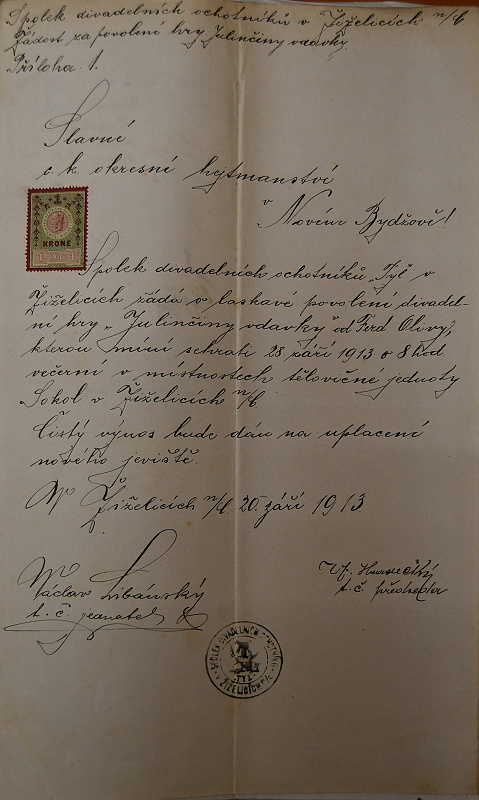 Spolek divadelních ochotníků v Žiželicích n/C
Žádost za povolení hry Julinčiny vdavky.
Příloha 1.
Slavné
c. k. okresní hejtmanství
v
Novém Bydžově!
1
KRONE
1 1910 1
Spolek divadelních ochotníků „Tyl" v
Žiželicích žádá o laskavé povolení divadel-
ní hry „Julinčiny vdavky" od Ferd. Olivy,
kterou míní sehrati 28. září 1913 o 8 hod
večerní v místnostech tělocvičné jednoty
Sokol v Žiželicích n/C.
Čistý výnos bude dán na uplacení
nového jeviště.
V Žiželicích n/C. 20. září 1913
Václav Libánský
t. č. jednatel
t. č. předseda
SPOLEK DIVADELNÍCH OCHOTNÍKŮ
TYL
V ŽIŽELICÍCH N/C